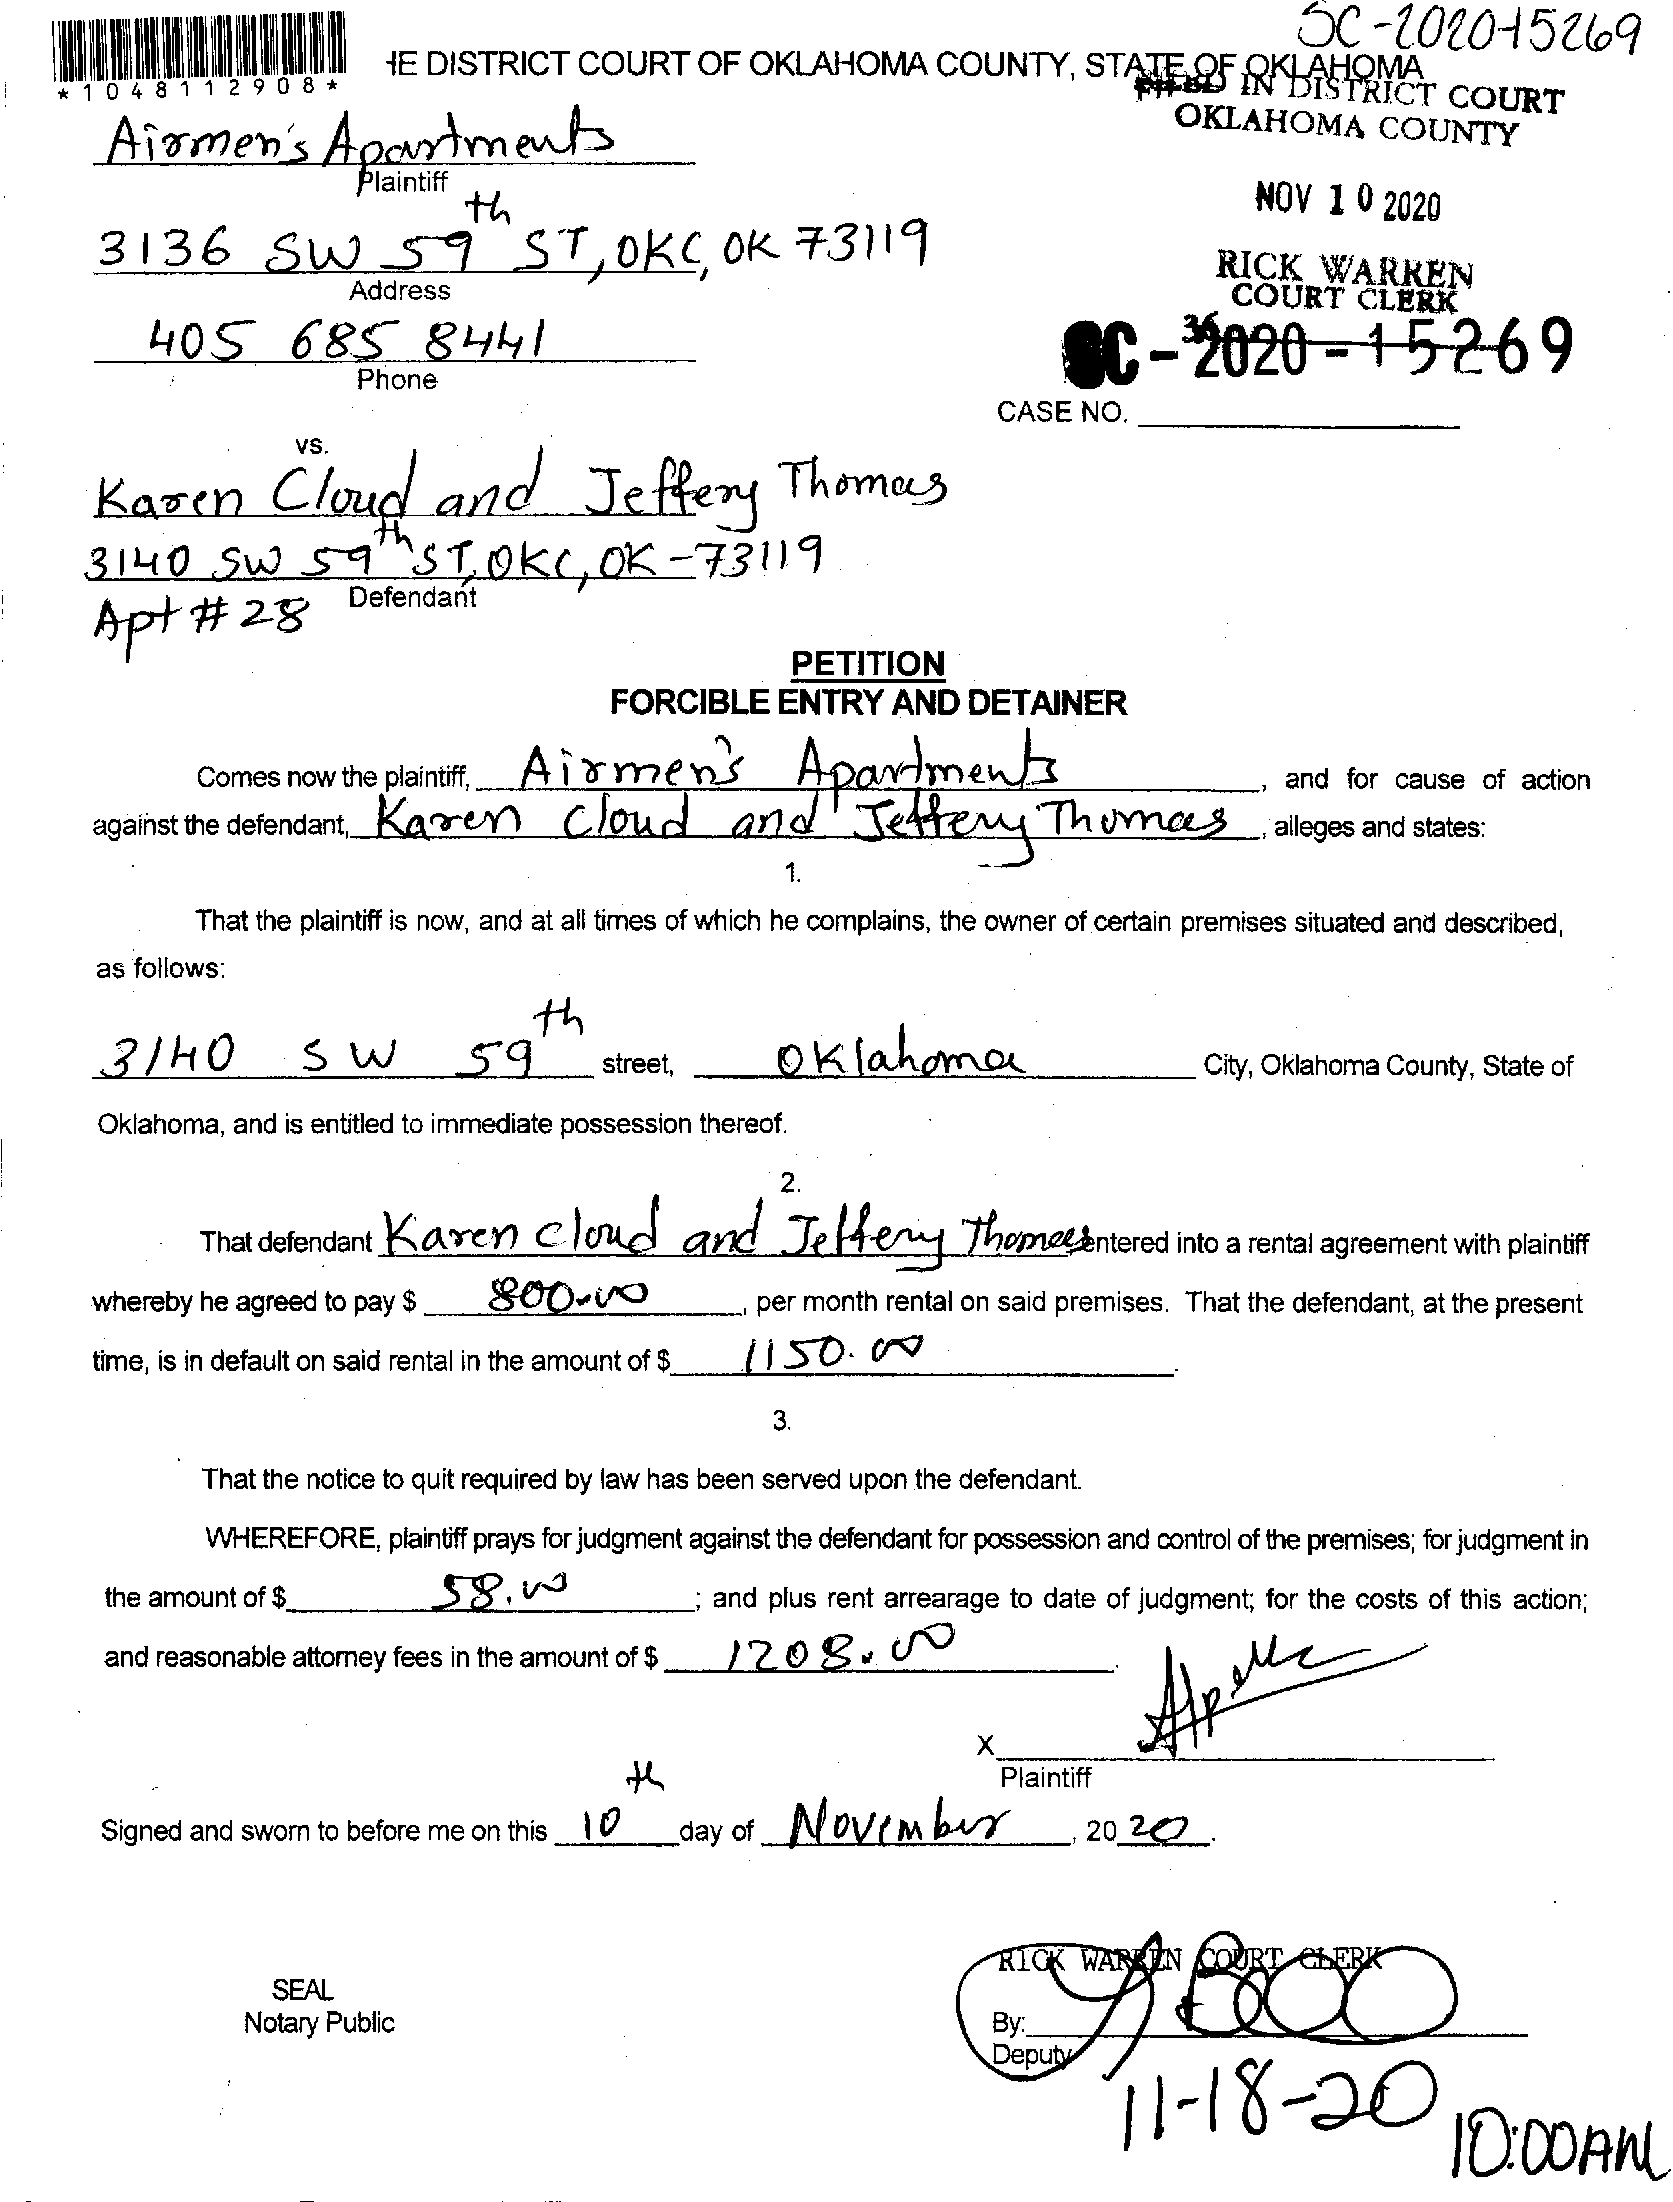 SC-2020-15269
*1048112908*
HE DISTRICT COURT OF OKLAHOMA COUNTY, STATE OF OKLAHOMA
FILED IN DISTRICT COURT
OKLAHOMA COUNTY
Airmen's Apartments
Plaintiff
NOV 10 2020
3136 SW 59th ST, OKC, OK 73119
Address
RICK WARREN
COURT CLERK
405 685 8441
Phone
36
SC-2020-15269
CASE NO.
vs.
Karen Cloud and Jeffery Thomas
3140 SW 59th ST, OKC, OK-73119
Defendant
Apt # 28
PETITION
FORCIBLE ENTRY AND DETAINER
Comes now the plaintiff, Airmen's Apartments, and for cause of action
against the defendant, Karen Cloud and Jeffery Thomas, alleges and states:
1.
That the plaintiff is now, and at all times of which he complains, the owner of certain premises situated and described,
as follows:
3140 SW 59th street, Oklahoma City, Oklahoma County, State of
Oklahoma, and is entitled to immediate possession thereof.
2.
That defendant Karen Cloud and Jeffery Thomas entered into a rental agreement with plaintiff
whereby he agreed to pay $ 800.00, per month rental on said premises. That the defendant, at the present
time, is in default on said rental in the amount of $ 1150.00.
3.
That the notice to quit required by law has been served upon the defendant.
WHEREFORE, plaintiff prays for judgment against the defendant for possession and control of the premises; for judgment in
the amount of $ 58.00; and plus rent arrearage to date of judgment; for the costs of this action;
and reasonable attorney fees in the amount of $ 1208.00.
X
Plaintiff
Signed and sworn to before me on this 10th day of November, 2020.
RICK WARREN COURT CLERK
SEAL
Notary Public
By:
Deputy
11-18-20
10:00AM